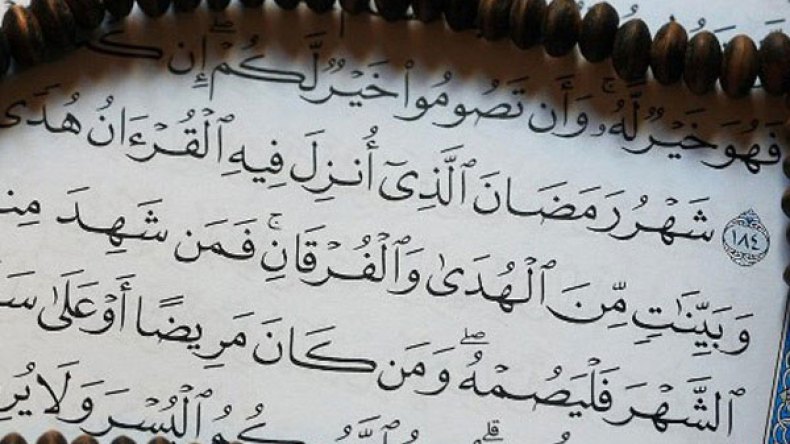 فَهُوَ خَيْرٌ لَّهُۥ ۚ وَأَن تَصُومُوا۟ خَيْرٌ لَّكُمْ ۖ إِن
١٨٤ شَهْرُ رَمَضَانَ ٱلَّذِىٓ أُنزِلَ فِيهِ ٱلْقُرْءَانُ هُدًى
وَبَيِّنَٰتٍ مِّنَ ٱلْهُدَىٰ وَٱلْفُرْقَانِ ۚ فَمَن شَهِدَ
ٱلشَّهْرَ فَلْيَصُمْهُ ۖ وَمَن كَانَ مَرِيضًا أَوْ عَلَىٰ
ٱلْيُسْرَ وَلَا